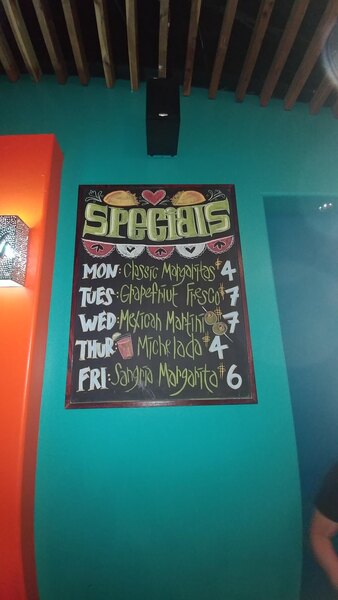 SPECIALS
MON: Classic Margaritas $4
TUES: Grapefriut Fresco $7
WED: Mexican Martini $7
THUR: Michelada $4
FRI: Sangria Margarita $6